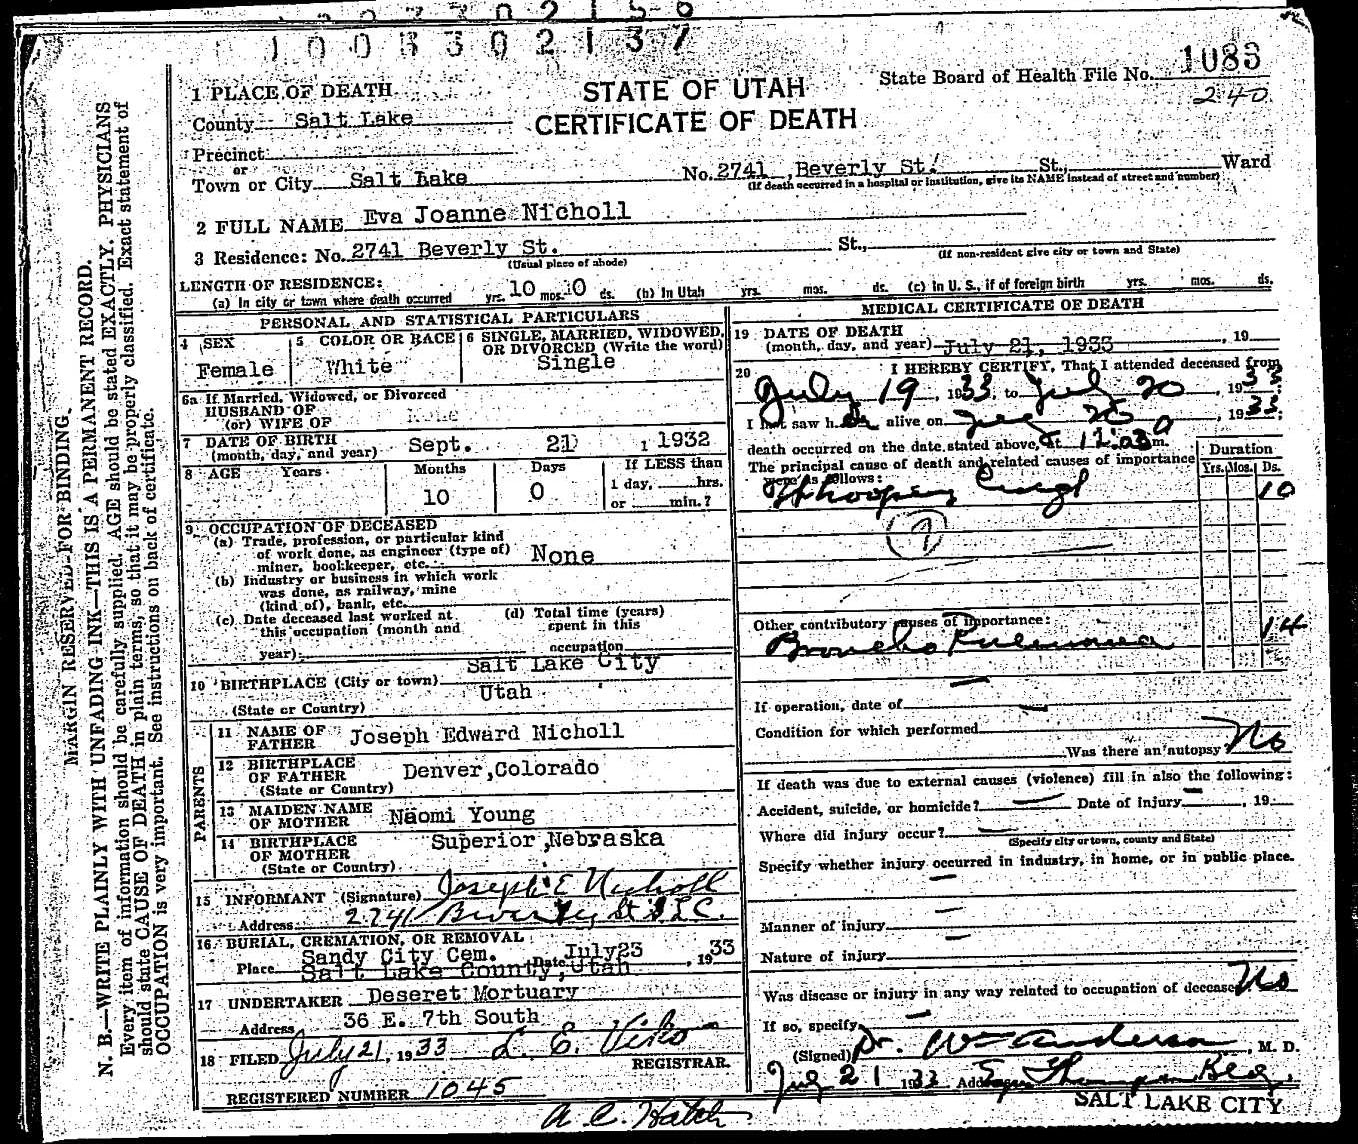 1003302137
State Board of Health File No. 1083
240
STATE OF UTAH
CERTIFICATE OF DEATH
1 PLACE OF DEATH
County Salt Lake
Precinct
or
Town or City Salt Lake No. 2741, Beverly St. St., Ward
(If death occurred in a hospital or institution, give its NAME instead of street and number)
2 FULL NAME Eva Joanne Nicholl
3 Residence: No. 2741 Beverly St. St.,
(Usual place of abode) (If non-resident give city or town and State)
LENGTH OF RESIDENCE:
(a) In city or town where death occurred yrs. 10 mos. 0 ds. (b) In Utah yrs. mos. ds. (c) In U. S., if of foreign birth yrs. mos. ds.
PERSONAL AND STATISTICAL PARTICULARS
4 SEX
Female
5 COLOR OR RACE
White
6 SINGLE, MARRIED, WIDOWED,
OR DIVORCED (Write the word)
Single
6a If Married, Widowed, or Divorced
HUSBAND OF
(or) WIFE OF
None
7 DATE OF BIRTH
(month, day, and year) Sept. 21 1 1932
8 AGE Years Months Days If LESS than
10 0 1 day, hrs.
or min.?
9. OCCUPATION OF DECEASED
(a) Trade, profession, or particular kind
of work done, as engineer (type of)
miner, bookkeeper, etc. None
(b) Industry or business in which work
was done, as railway, mine
(kind of), bank, etc.
(c) Date deceased last worked at
this occupation (month and
year)
(d) Total time (years)
spent in this
occupation
10 BIRTHPLACE (City or town) Salt Lake City
(State or Country) Utah
PARENTS
11 NAME OF
FATHER Joseph Edward Nicholl
12 BIRTHPLACE
OF FATHER Denver, Colorado
(State or Country)
13 MAIDEN NAME
OF MOTHER Naomi Young
14 BIRTHPLACE
OF MOTHER Superior, Nebraska
(State or Country)
15 INFORMANT (Signature) Joseph E Nicholl
Address 2741 Beverley St S.L.C.
16 BURIAL, CREMATION, OR REMOVAL
Sandy City Cem. Date July 23, 1933
Place Salt Lake County, Utah
17 UNDERTAKER Deseret Mortuary
Address 36 E. 7th South
18 FILED July 21, 1933 L. E. Viko
REGISTRAR.
REGISTERED NUMBER 1045
A. C. Hatch
MEDICAL CERTIFICATE OF DEATH
19 DATE OF DEATH
(month, day, and year) July 21, 1933, 19
20 I HEREBY CERTIFY, That I attended deceased from
July 19, 1933 to July 20, 1933
I last saw h er alive on July 20, 1933;
death occurred on the date stated above, at m.
The principal cause of death and related causes of importance
were as follows:
Duration
Yrs. Mos. Ds.
Whooping Cough 10
9
Other contributory causes of importance:
Broncho Pneumonia 14
If operation, date of
Condition for which performed
Was there an autopsy No
If death was due to external causes (violence) fill in also the following:
Accident, suicide, or homicide? Date of injury, 19
Where did injury occur?
(Specify city or town, county and State)
Specify whether injury occurred in industry, in home, or in public place.
Manner of injury
Nature of injury
Was disease or injury in any way related to occupation of deceased No
If so, specify
(Signed) Dr. Wm Anderson, M. D.
July 21 1933 Address Thompson Bldg.
SALT LAKE CITY
MARGIN RESERVED FOR BINDING.
N. B.—WRITE PLAINLY WITH UNFADING INK—THIS IS A PERMANENT RECORD.
Every item of information should be carefully supplied. AGE should be stated EXACTLY. PHYSICIANS
should state CAUSE OF DEATH in plain terms, so that it may be properly classified. Exact statement of
OCCUPATION is very important. See instructions on back of certificate.